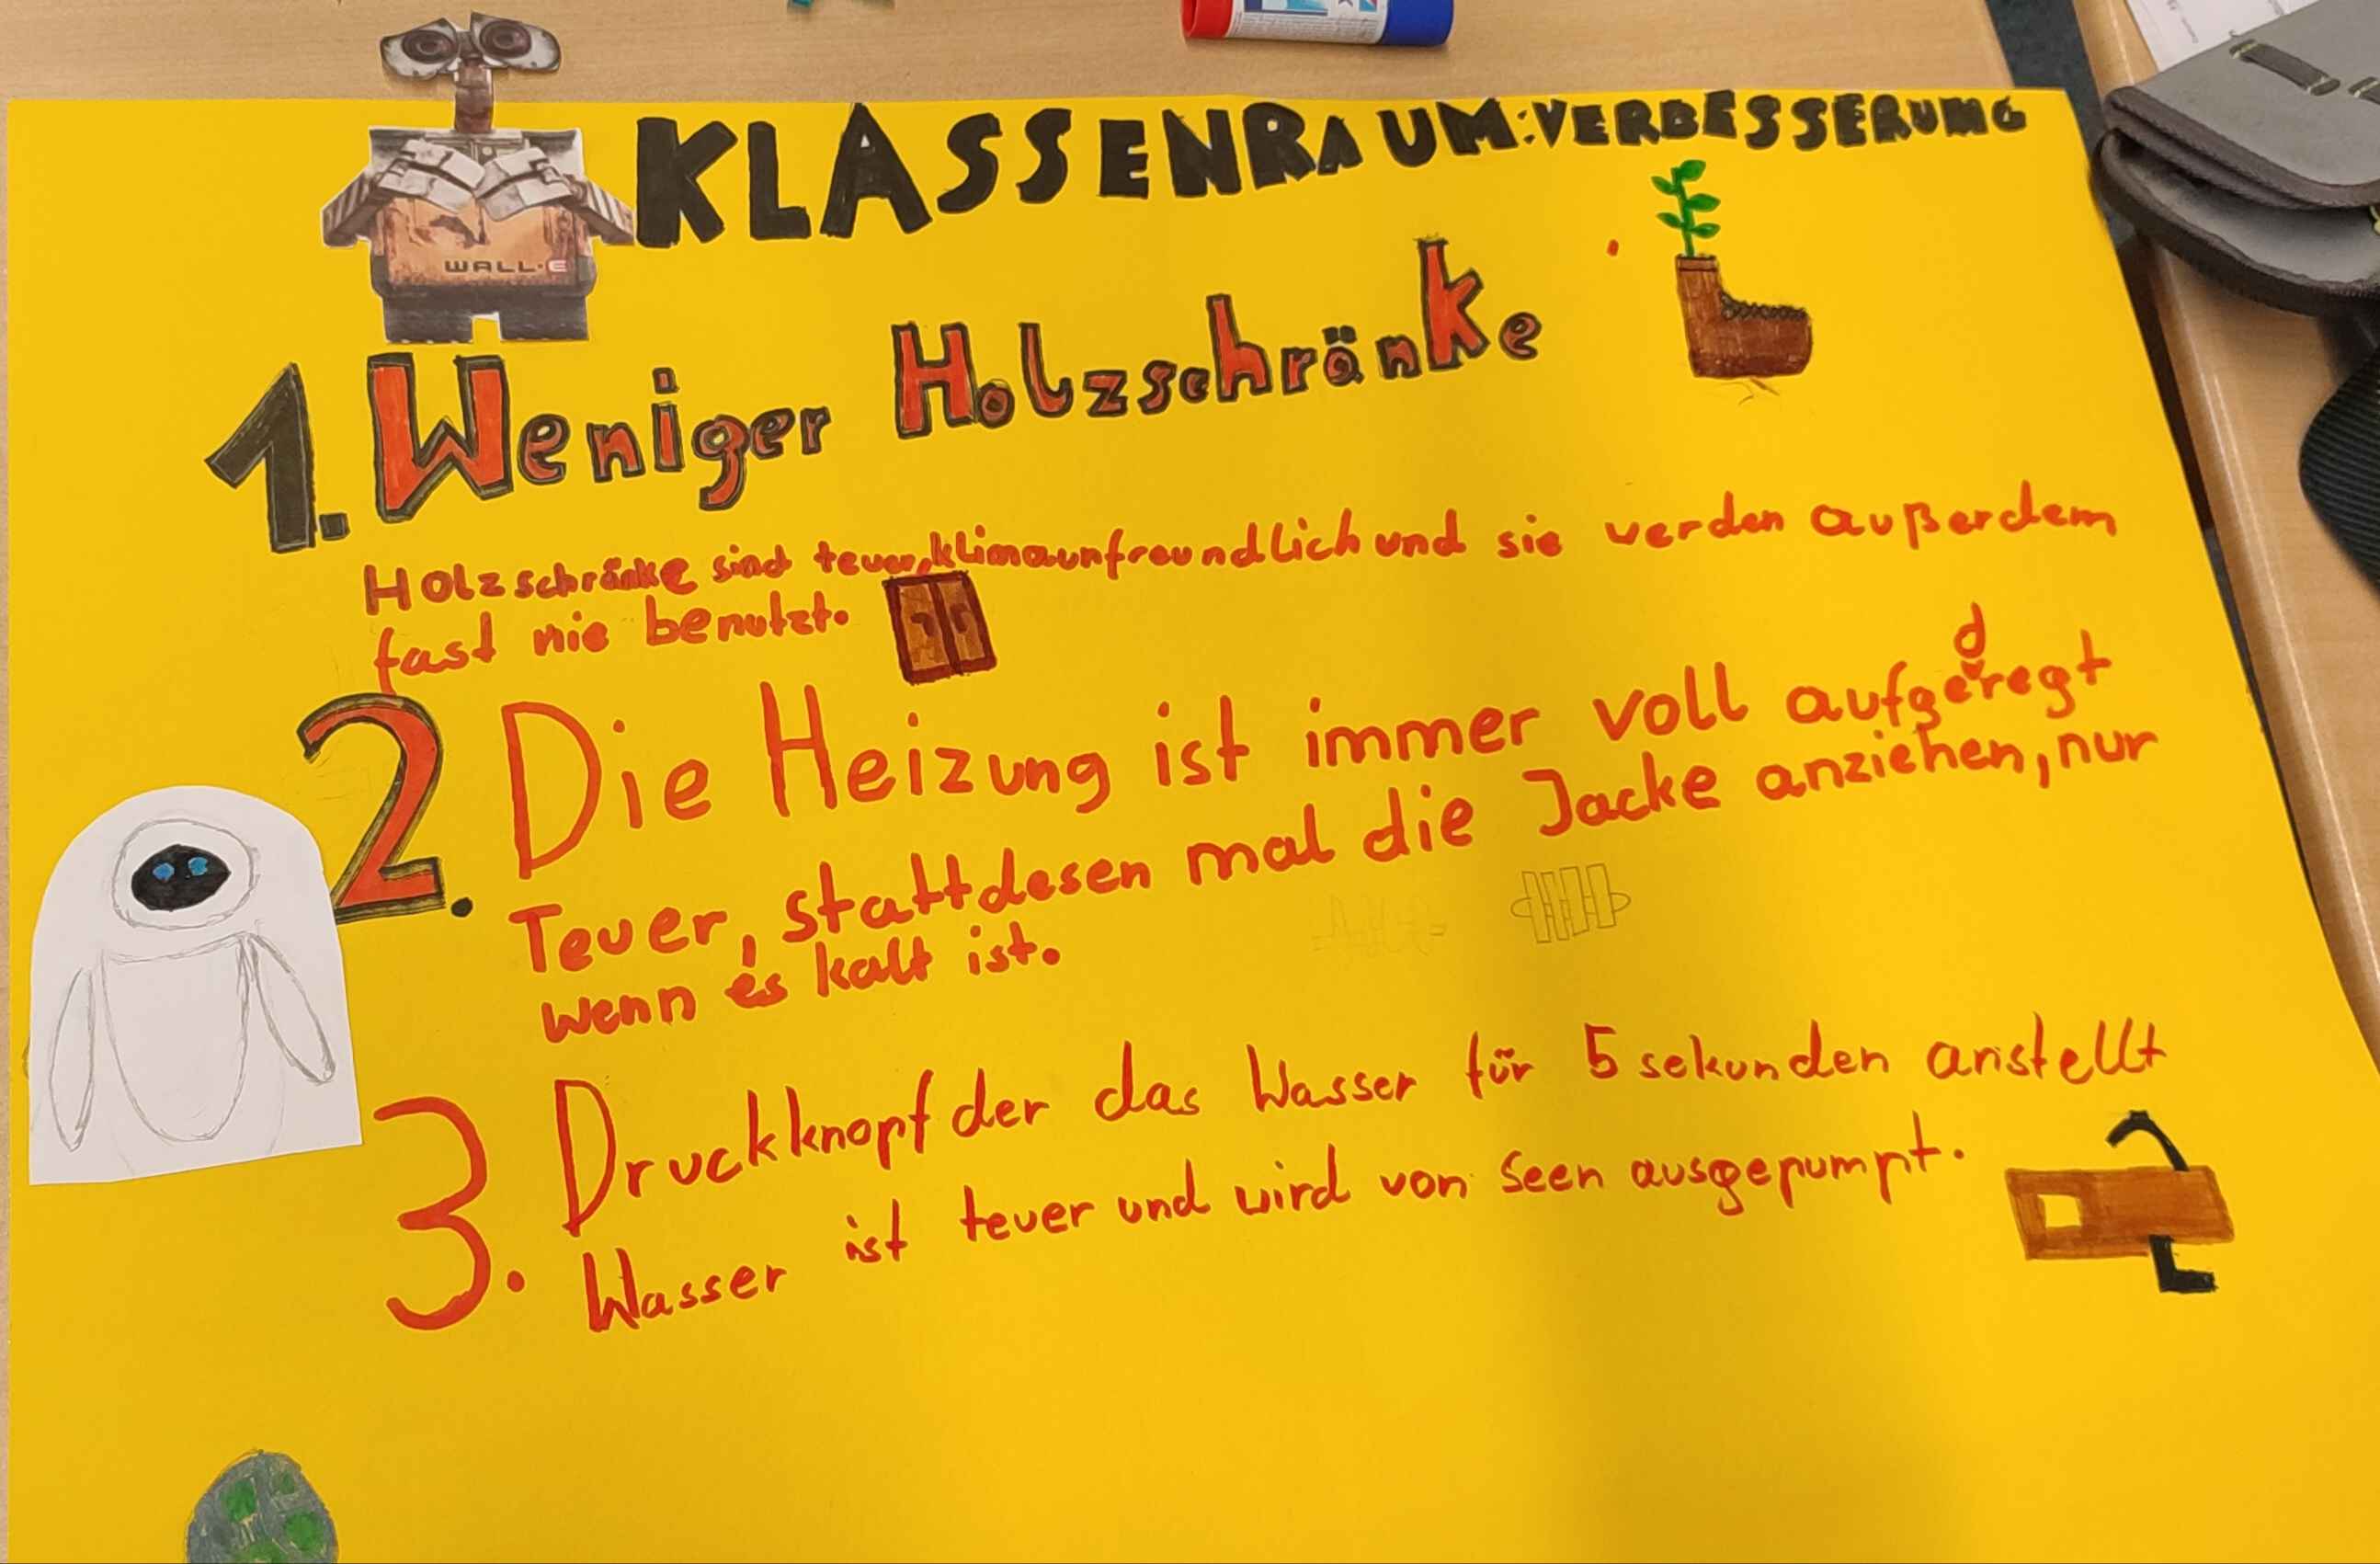 WALL·E
KLASSENRAUM:VERBESSERUNG
1. Weniger Holzschränke
Holzschränke sind teuer, klimaunfreundlich und sie werden außerdem
fast nie benutzt.
2. Die Heizung ist immer voll aufgedregt
Teuer, stattdesen mal die Jacke anziehen, nur
wenn es kalt ist.
3. Druckknopf der das Wasser für 5 sekunden anstellt
Wasser ist teuer und wird von Seen ausgepumpt.